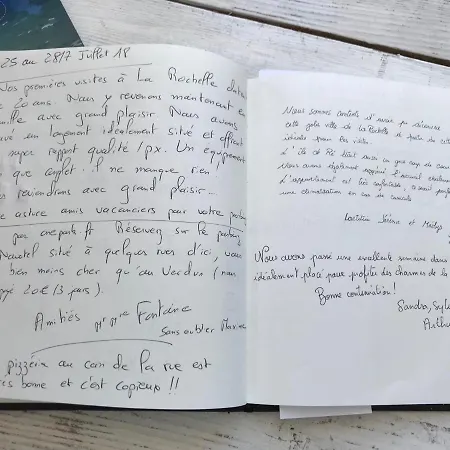 25 au 28/7 Juillet 18
Nos premières visites à La Rochelle datent
20 ans. Nous y revenons maintenant en
famille avec grand plaisir. Nous avons
un logement idéalement situé et offrant
super rapport qualité / px. Un équipement
que complet : il ne manque rien !
reviendrons avec grand plaisir...
astuce amis vacanciers pour votre parking
par onepark.fr Réservez sur le parking
situé à quelques rues d'ici, vous
bien moins cher qu'au Verdun (nous
20€/3 jours).
Amitiés Mr Mme Fontaine
Sans oublier Maxime
pizzéria au coin de la rue est
bonne et c'est copieux !!
Nous sommes enchantés d'avoir pu découvrir
cette jolie ville de La Rochelle à partir de cette
idéale pour la visite.
L'île de Ré était aussi un gros coup de cœur
Nous avons également apprécié l'accueil chaleureux
L'appartement est très confortable, aurait parfait
une climatisation en cas de canicule
Laetitia Jérémie et Maëlys
Nous avons passé une excellente semaine dans
idéalement placé pour profiter des charmes de la
Bonne continuation !
Sandra, Sylv
Arthu